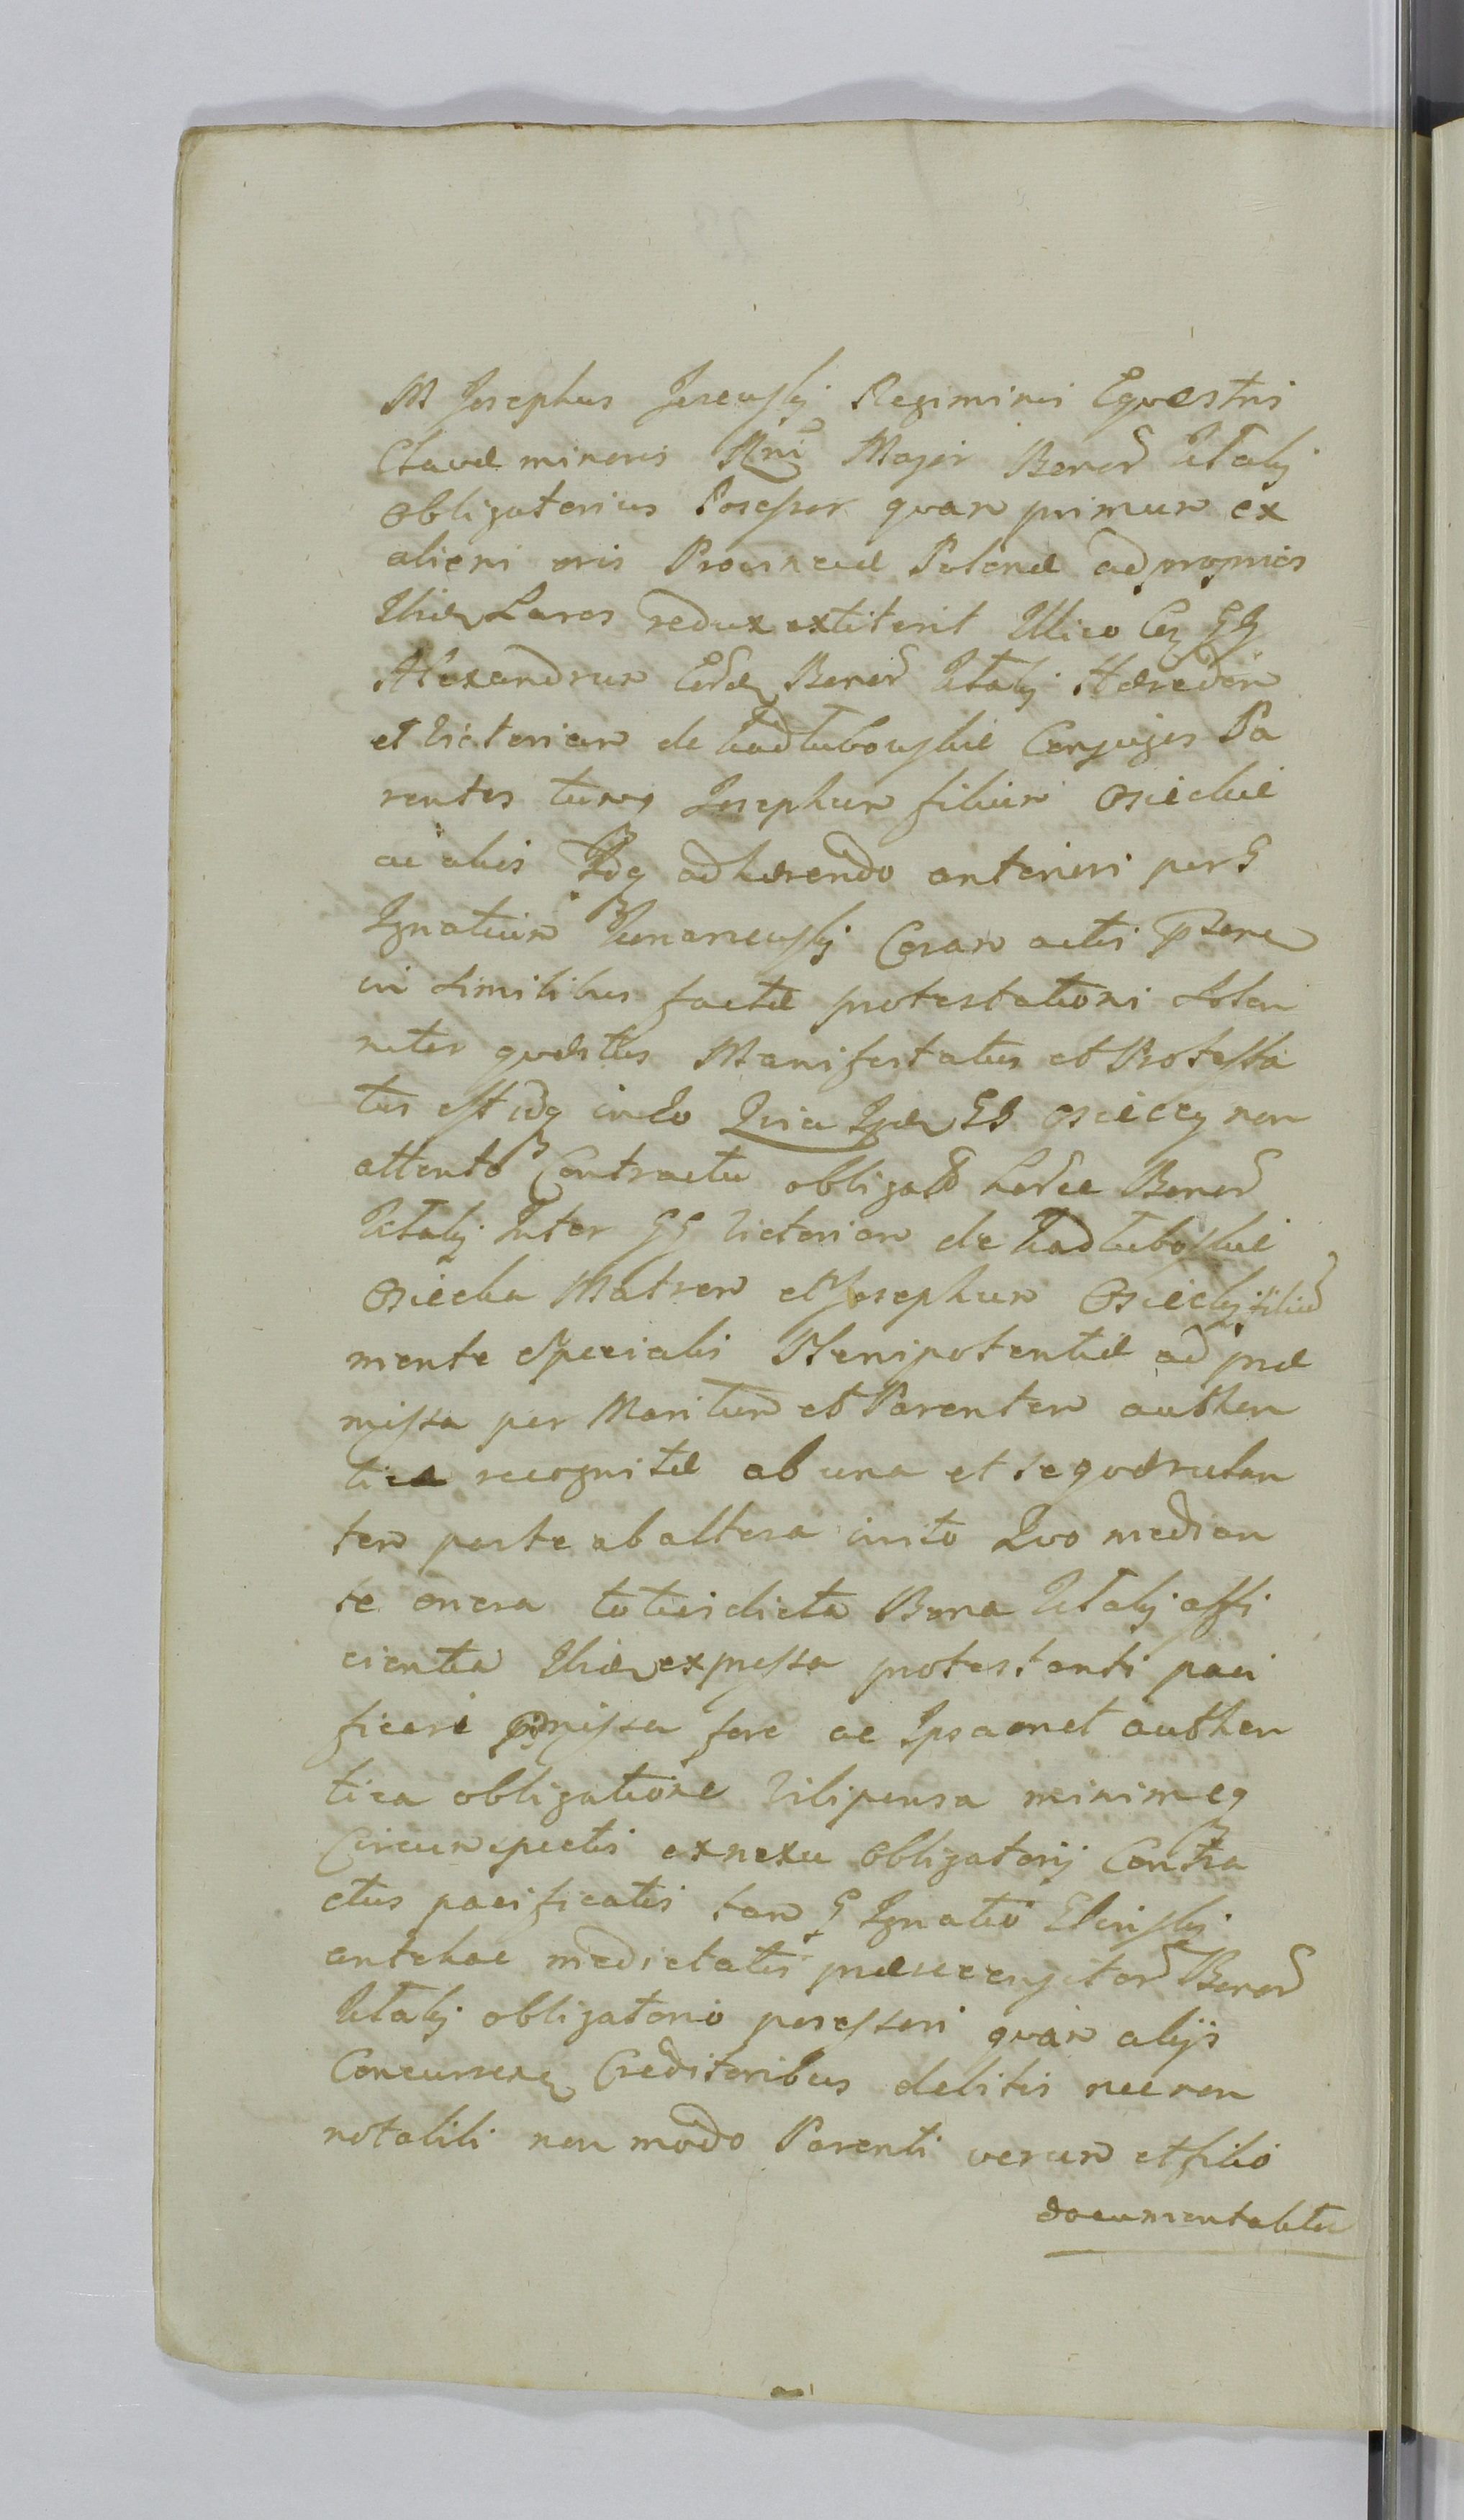 M Josephus Jerewski Regiminis Equestris
Clavæ minoris Rni Major Bonor Utalij
obligatorius Posessor quam primum ex
alieni oris Provinciæ Polonæ ad proprios
Lares redux extiterit Illico
Alexandrum Bonor Utalij Hæredem
et Victoriam de Conjuges Pa
rentes tumq Josephum filium Osieckie
ac alios adhærendo anteriori per G
Ignatium Coram actis
in similibus factæ protestationi solen
niter quæstus Manifestatus et Protesta
tus est idq in eo Quia GG Osieccy non
attento Contractu obligat Bonor
Utalij Inter GG Victoriam de
Osiecka Matrem et Josephum Osiecki filiu
mente specialis Plenipotentiæ ad præ
missa per Maritum et Parentem authen
tice recognitæ ab una et se quærulan
tem parte ab altera inito Quo median
te onera toties dicta Bona Utalij affi
cientia expressa protestanti paci
ficari fore ac Ipsamet authen
tica obligatione vilipensa minimeq
Circumspectis ex nexu obligatorij Contra
ctus pacificatis tam G Ignatio
antehac medietatis Bonor
Utalij obligatorio posessori quam alijs
Creditoribus debitis nec non
notabili non modo Parenti verum et filio
documentaliter